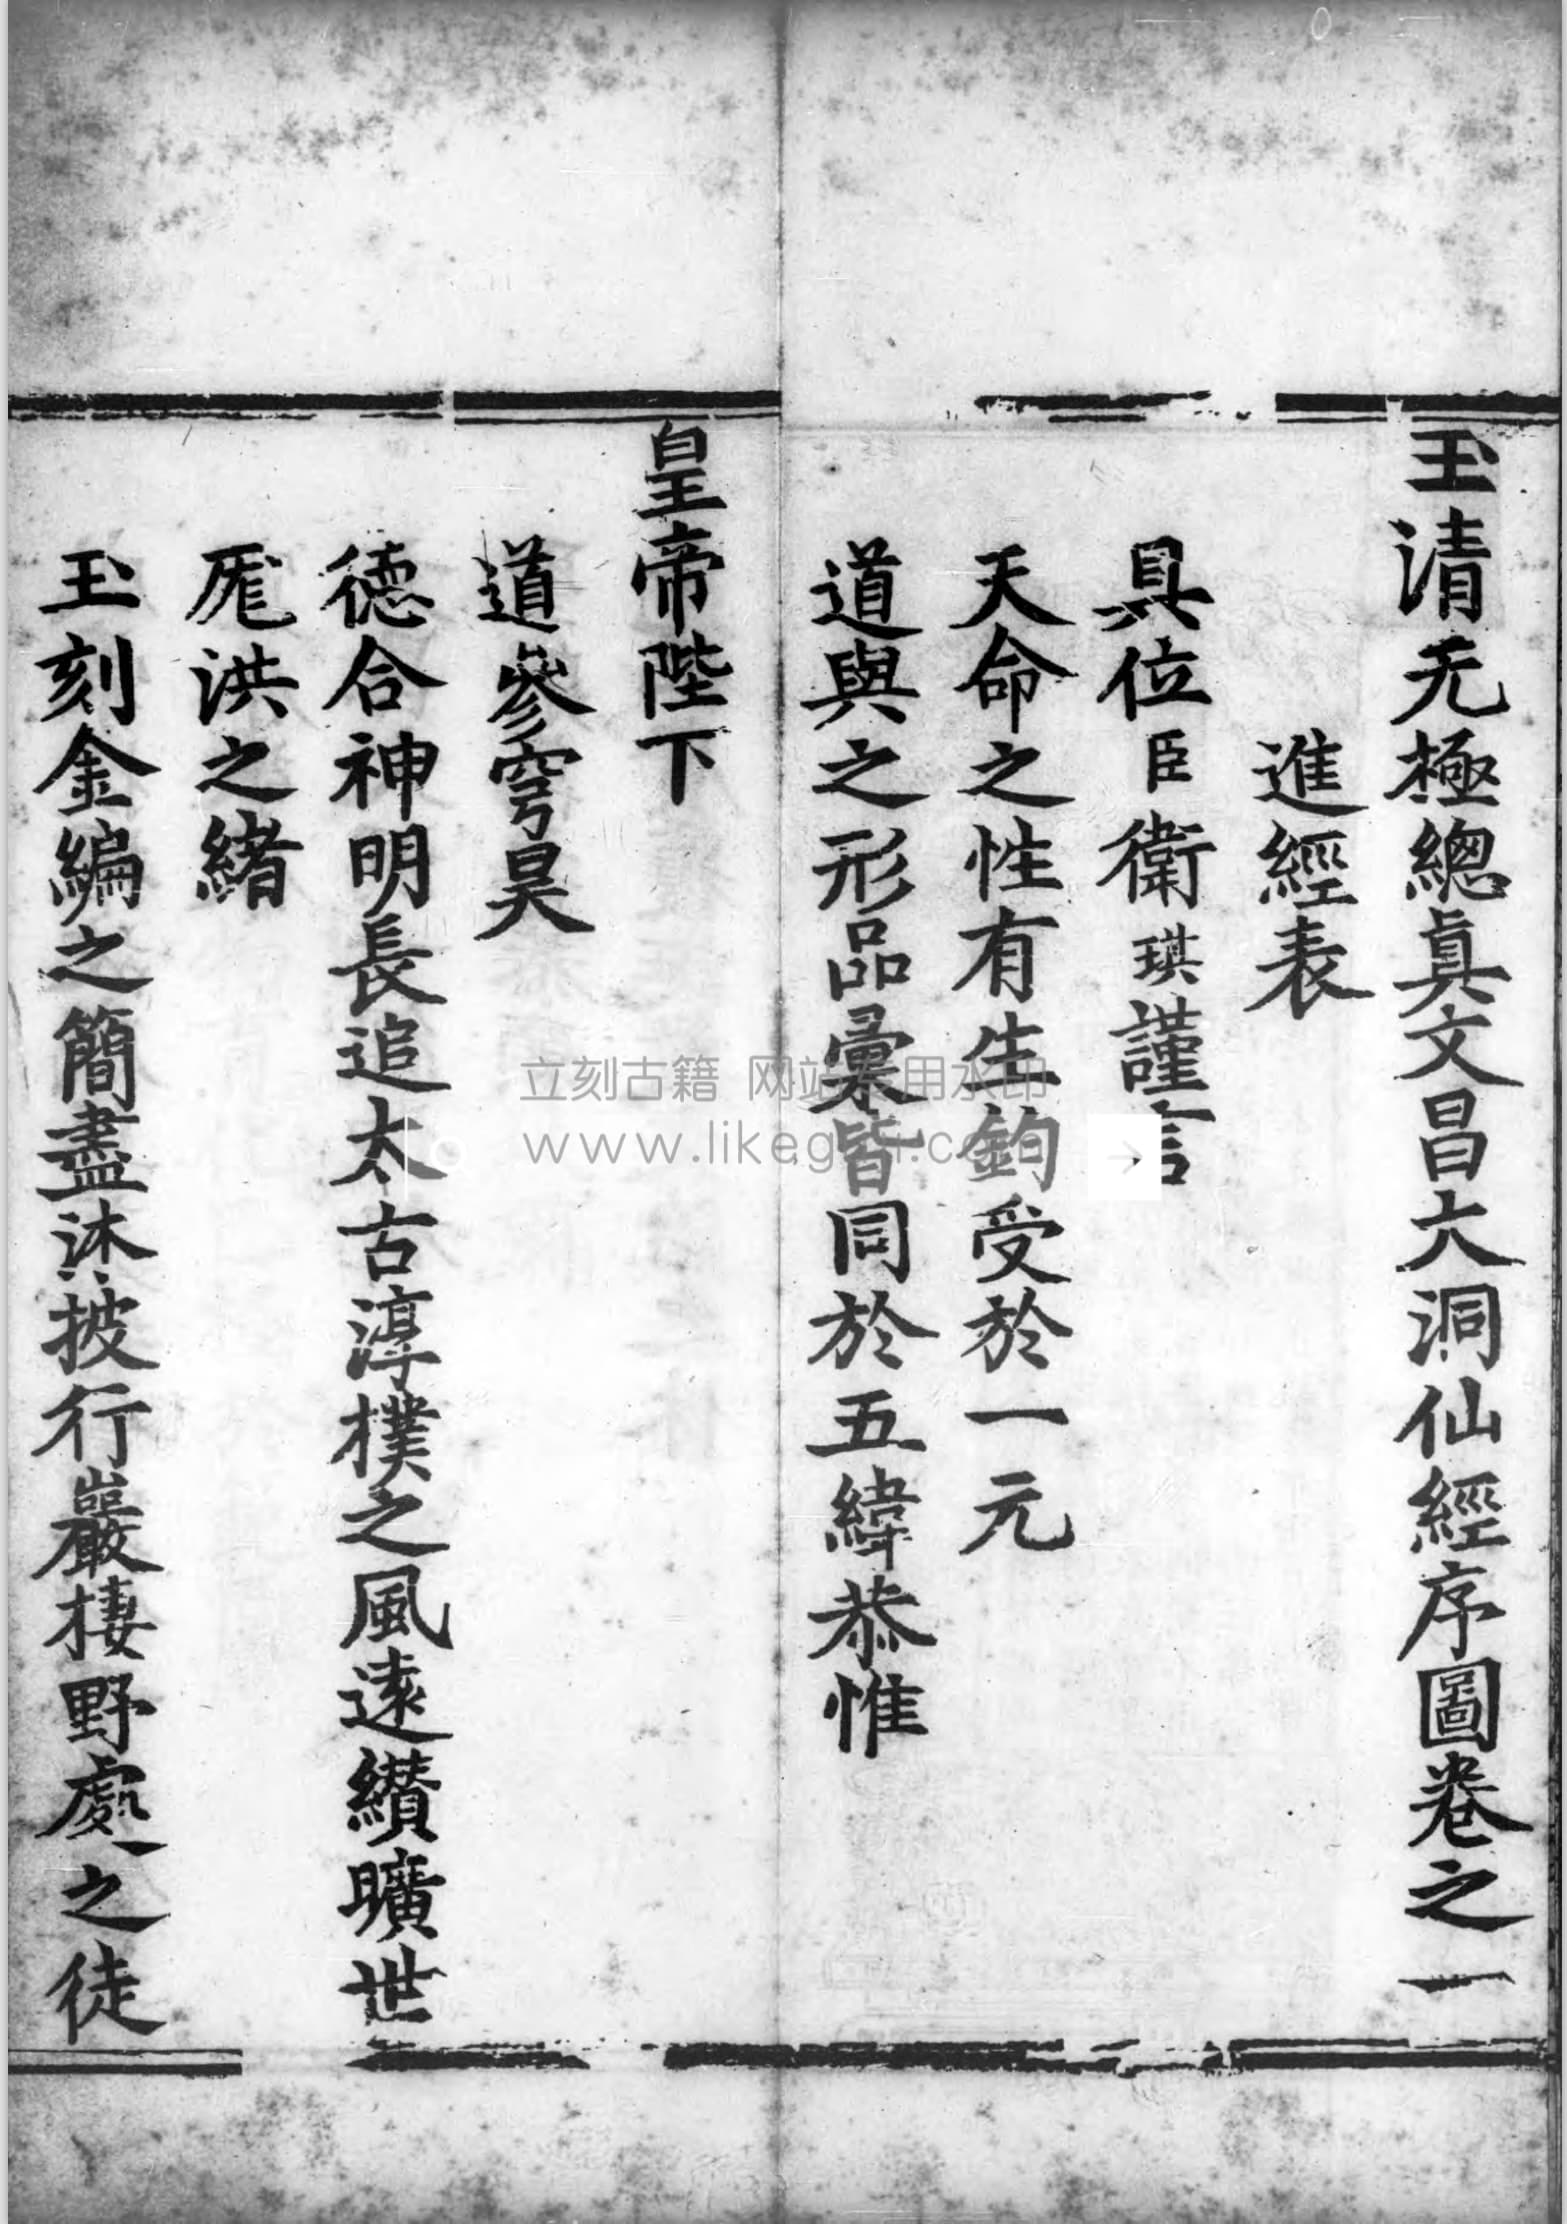 玉清无極總眞文昌大洞仙經序圖卷之一
進經表
具位臣衛琪謹言
天命之性有生鈞受於一元
道與之形品彙皆同於五緯恭惟
皇帝陛下
道參穹昊
德合神明長追太古淳樸之風遠纘曠世
厖洪之緒
玉刻金編之簡盡沐披行巖棲野處之徒
立刻古籍 网站专用水印
www.likeguji.com